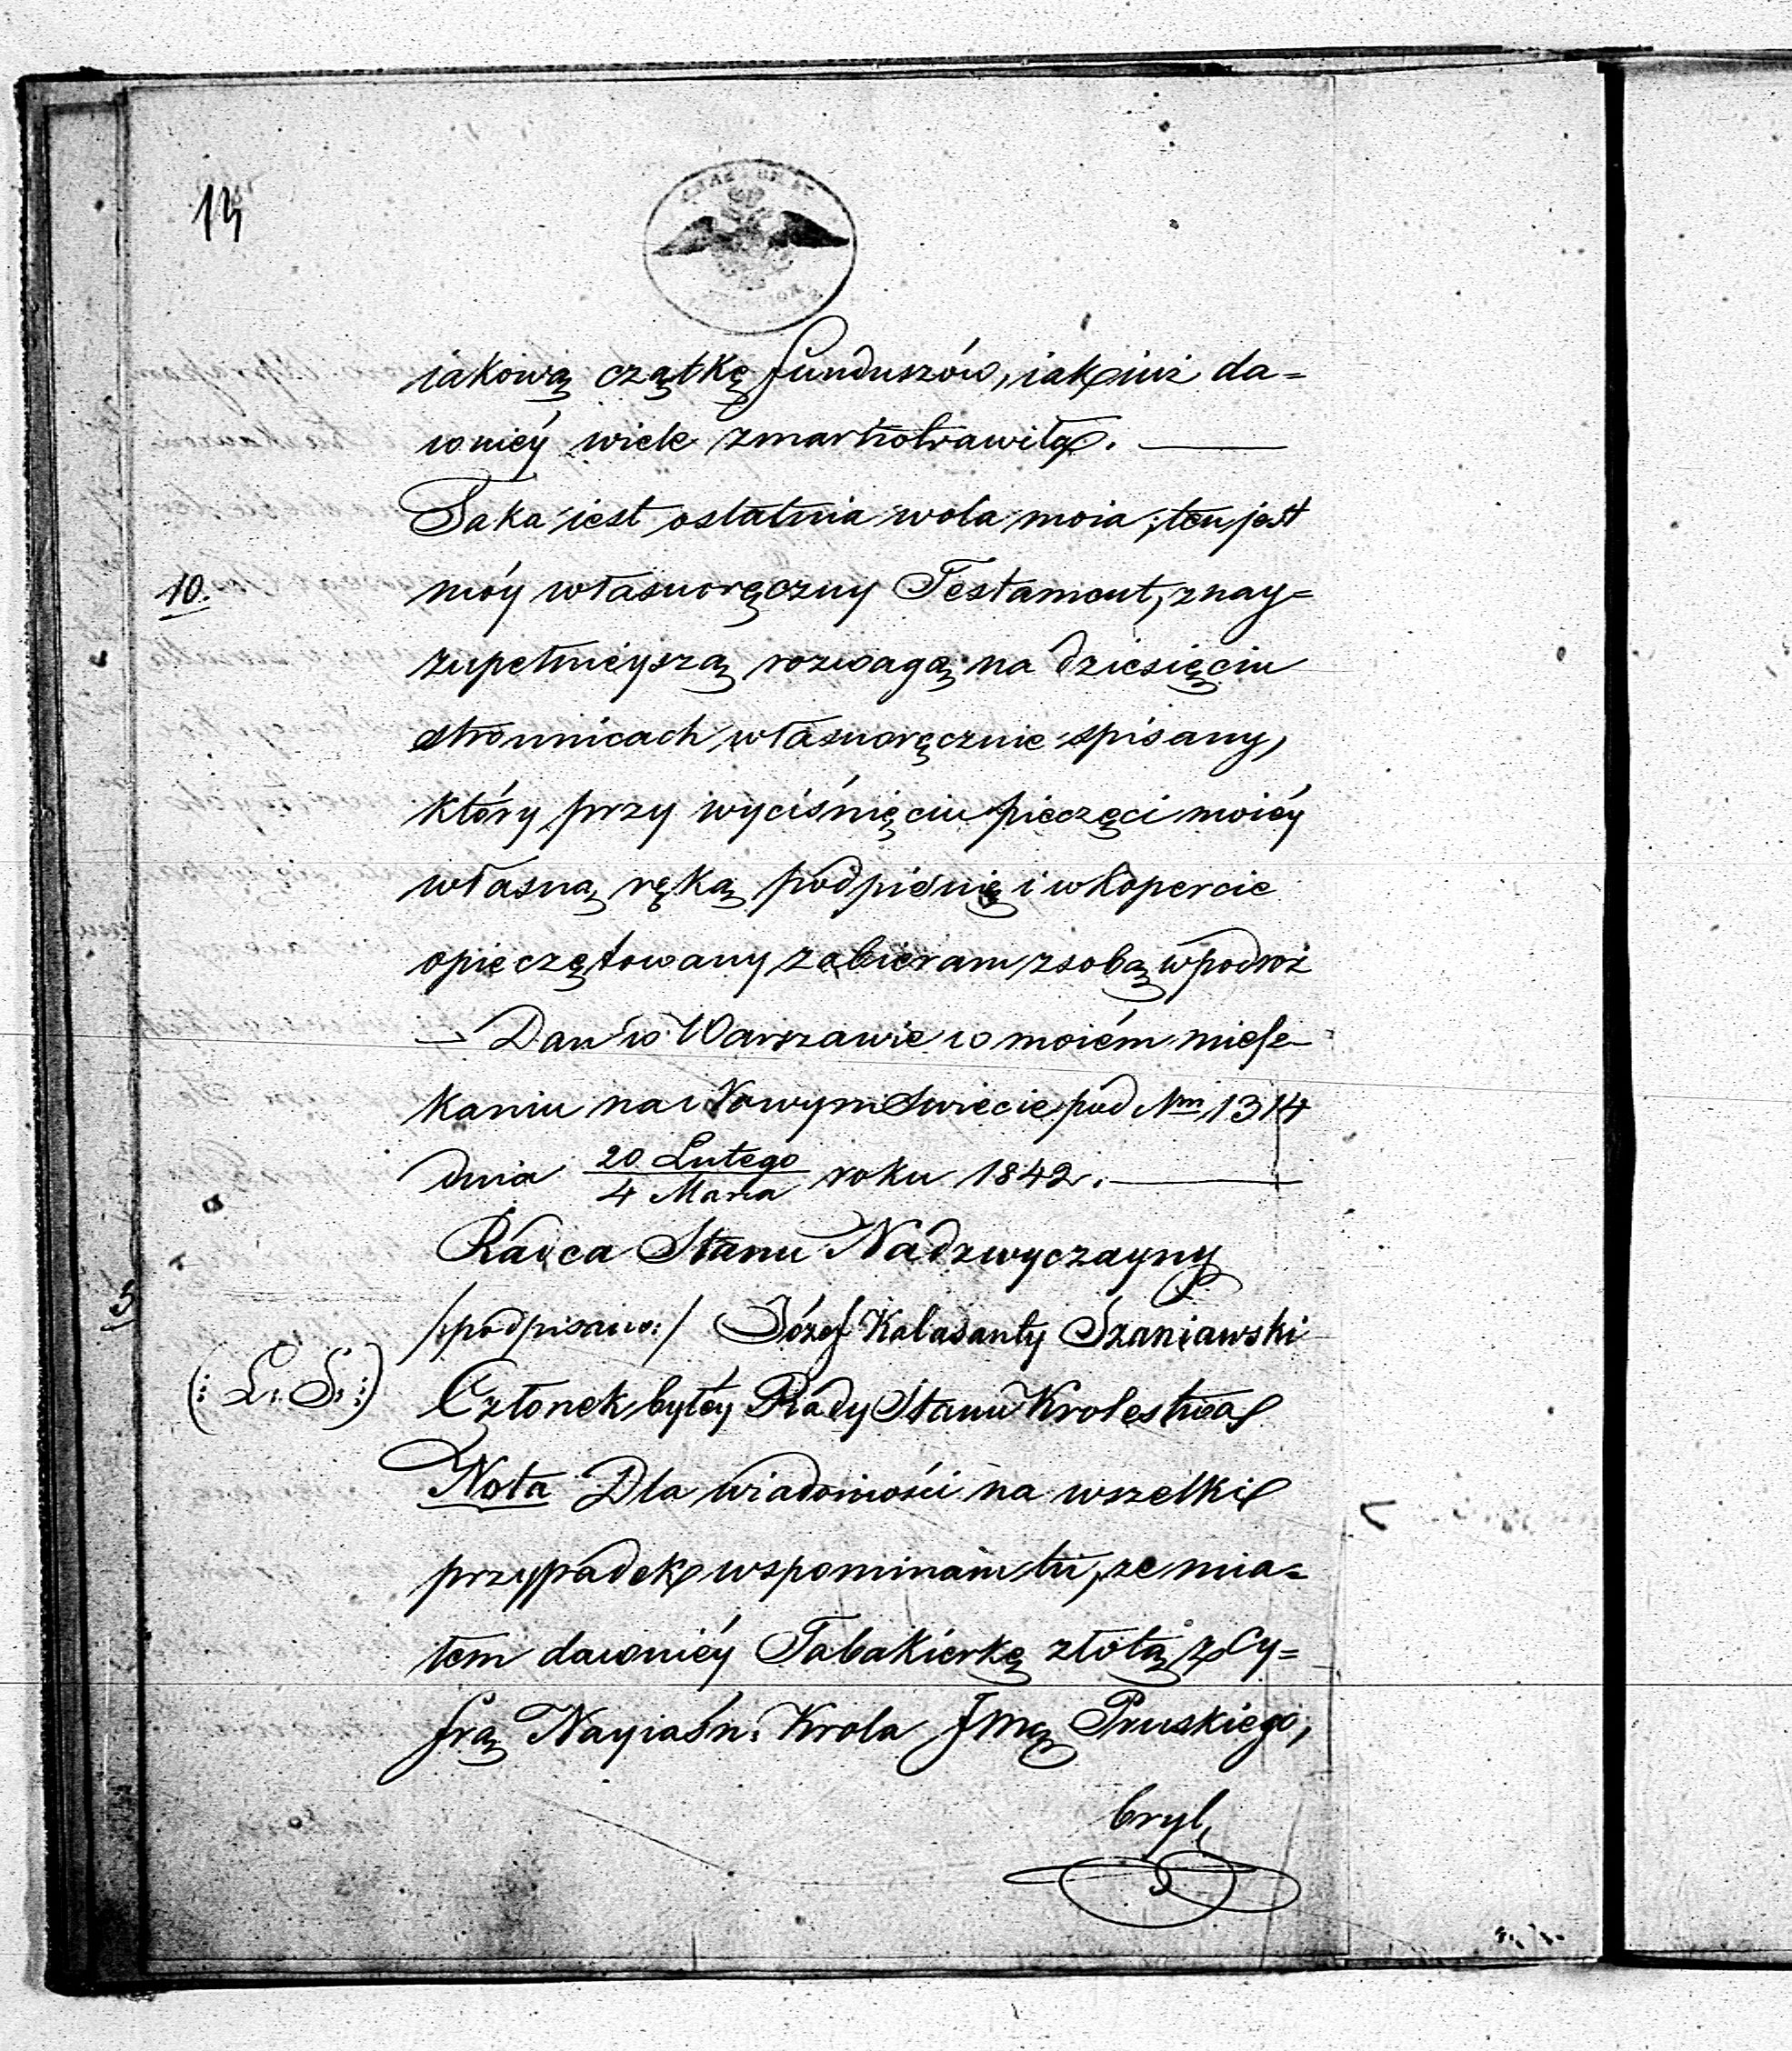 13
iakową cząstkę funduszów, iak iuż da=
wniéy wiele zmarnotrawiła.
Taka iest ostatnia wola moia; ten jest
10. móy własnoręczny Testament, z nay=
zupełnieyszą rozwagą na dziesięciu
stronnicach własnoręcznie spisany,
który przy wyciśnięciu pieczęci moiéy
własną ręką podpisuię i w kopercie
opieczętowany zabieram z sobą w podroż
— Dan w Warszawie w moiém miesz-
kaniu na Nowym Swiecie pod Nm 1314
dnia 20 Lutego / 4 Marca roku 1842.
Radca Stanu Nadzwyczayny
/:podpisano:/ Józef Kalasanty Szaniawski
(: L. S. :) Członek byłéy Rady Stanu Krolestwa
Nota Dla wiadomości na wszelki
przypadek wspominam tu, ze mia=
łem dawniéy Tabakierkę złotą z Cy=
frą Nayiaśn: Krola Jmci Pruskiego,
bryl,